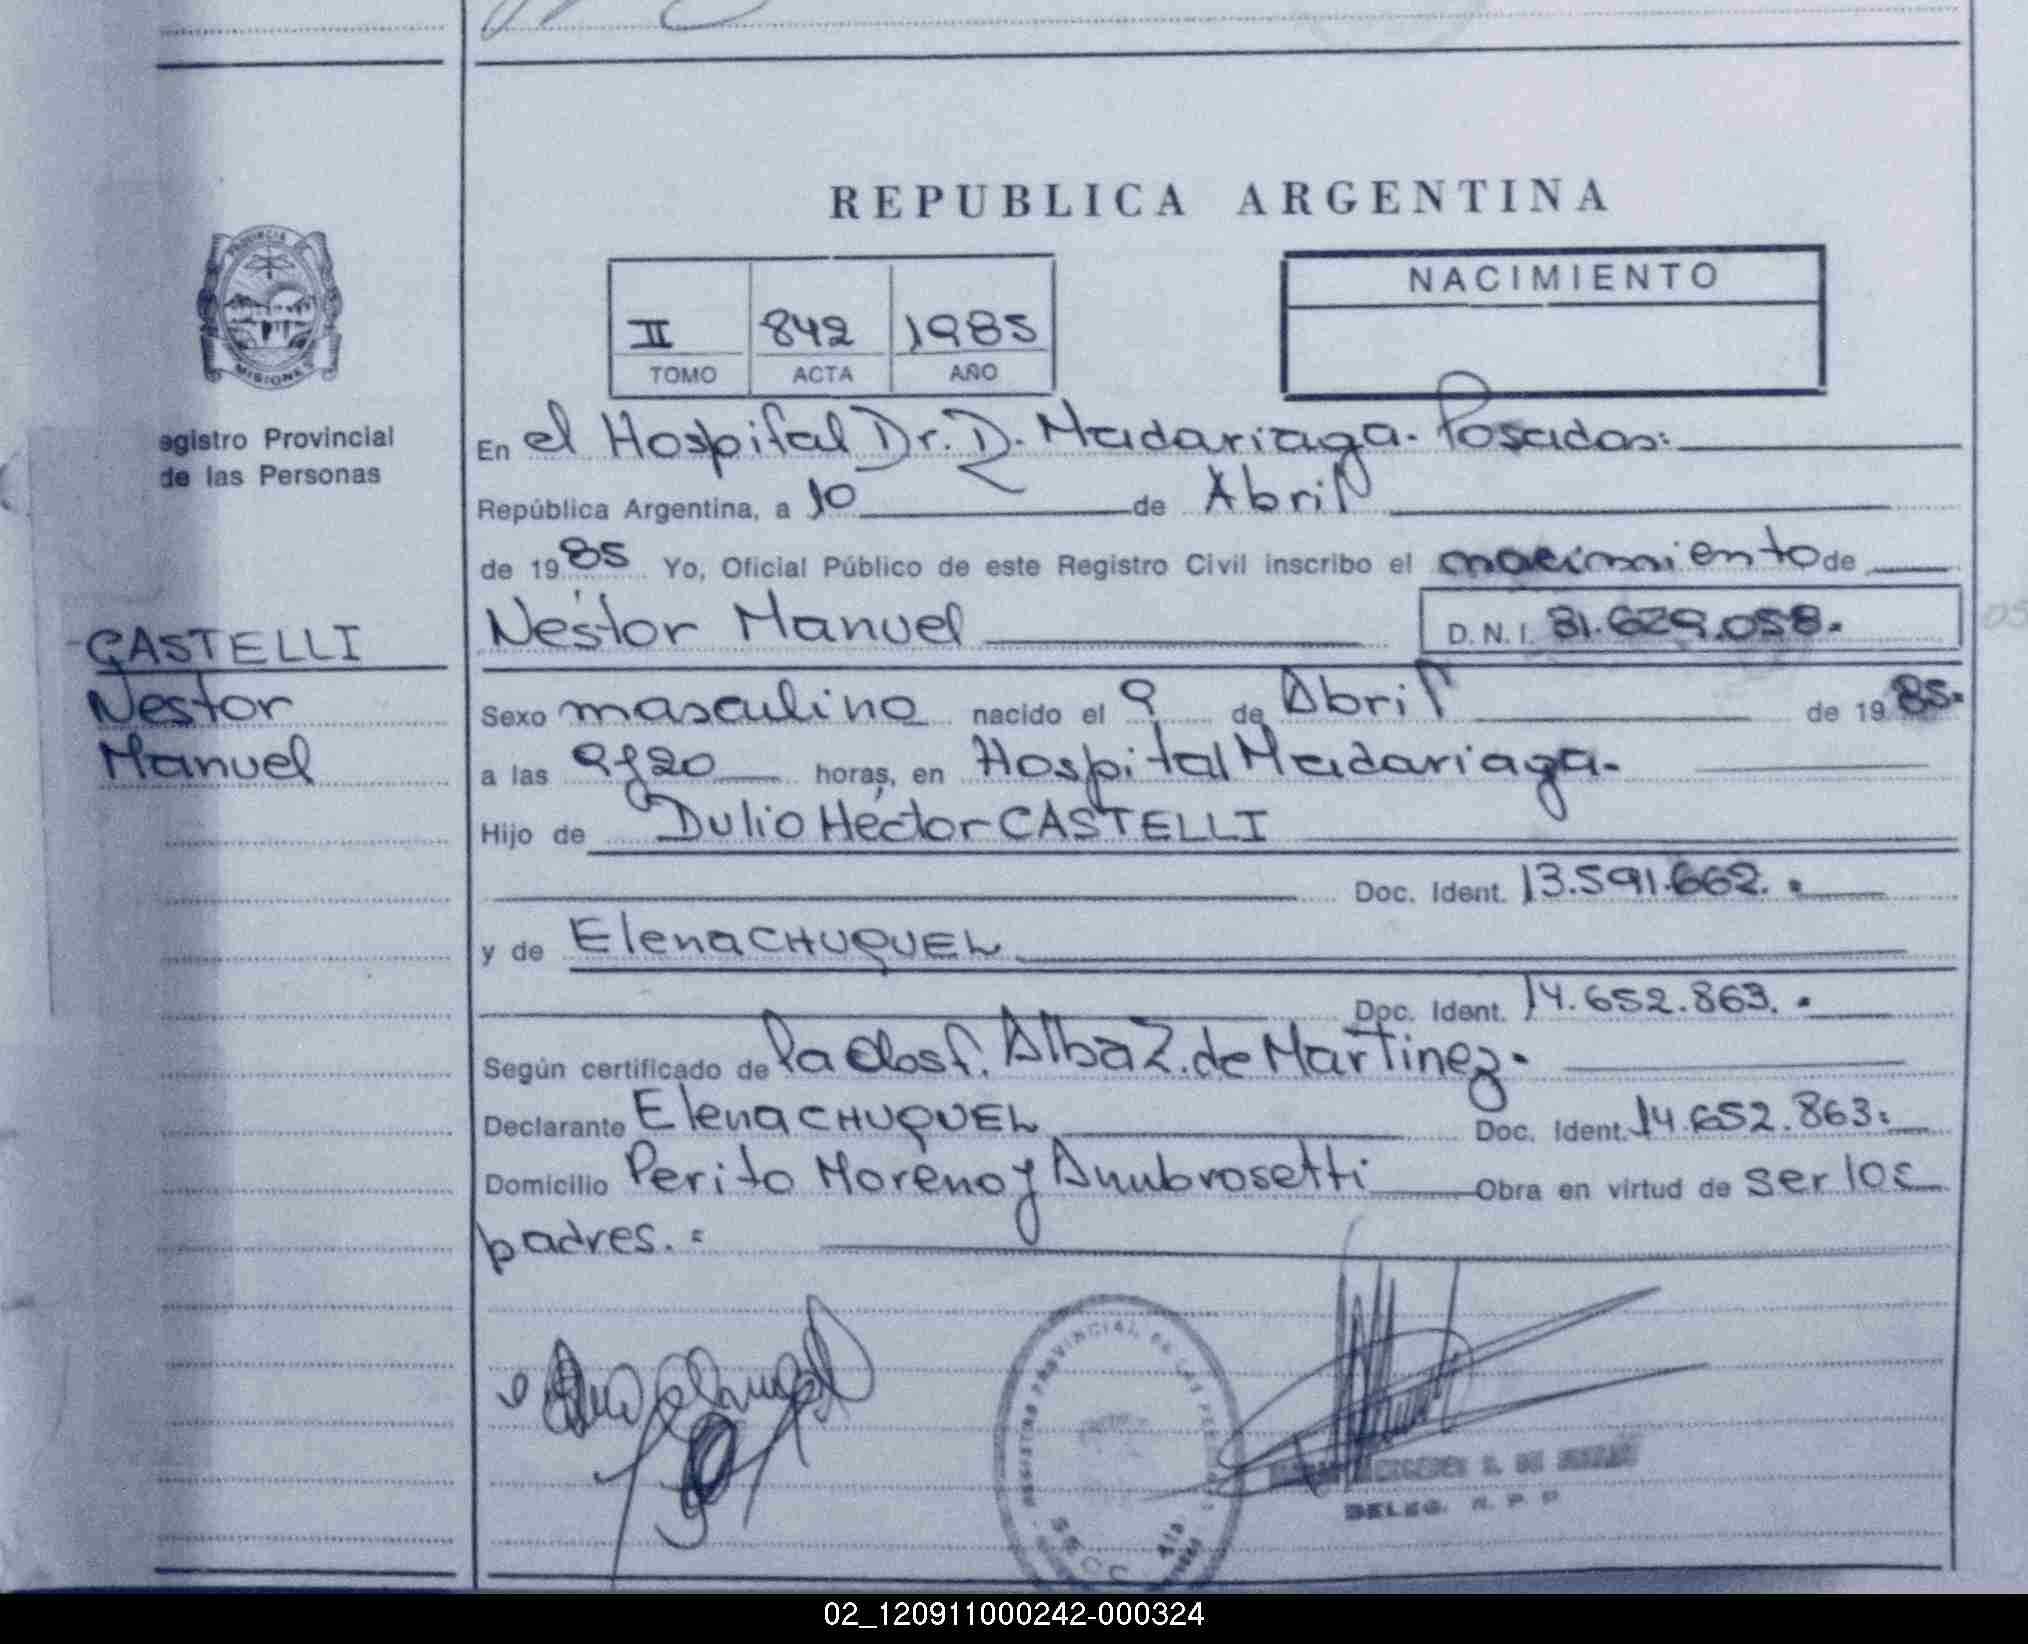 REPUBLICA ARGENTINA
PROVINCIA DE
MISIONES
II 842 1985
TOMO ACTA AÑO
NACIMIENTO
egistro Provincial
de las Personas
CASTELLI
Nestor
Manuel
En el Hospital Dr. D. Madariaga. Posadas:
República Argentina, a 10 de Abril
de 1985 Yo, Oficial Público de este Registro Civil inscribo el nacimiento de
Néstor Manuel D.N.I. 31.629.058.
Sexo masculino nacido el 9 de Abril de 1985.
a las 9y20 horas, en Hospital Madariaga.
Hijo de Dulio Héctor CASTELLI
Doc. Ident. 13.591.662.
y de Elena CHUQUEL
Doc. Ident. 14.652.863.
Según certificado de la Obst. Alba Z. de Martinez.
Declarante Elena CHUQUEL Doc. Ident. 14.652.863:
Domicilio Perito Moreno y Ambrosetti Obra en virtud de ser los
padres.=
REGISTRO PROVINCIAL DE LAS PERSONAS
DELEG. R. P. P.
02_120911000242-000324